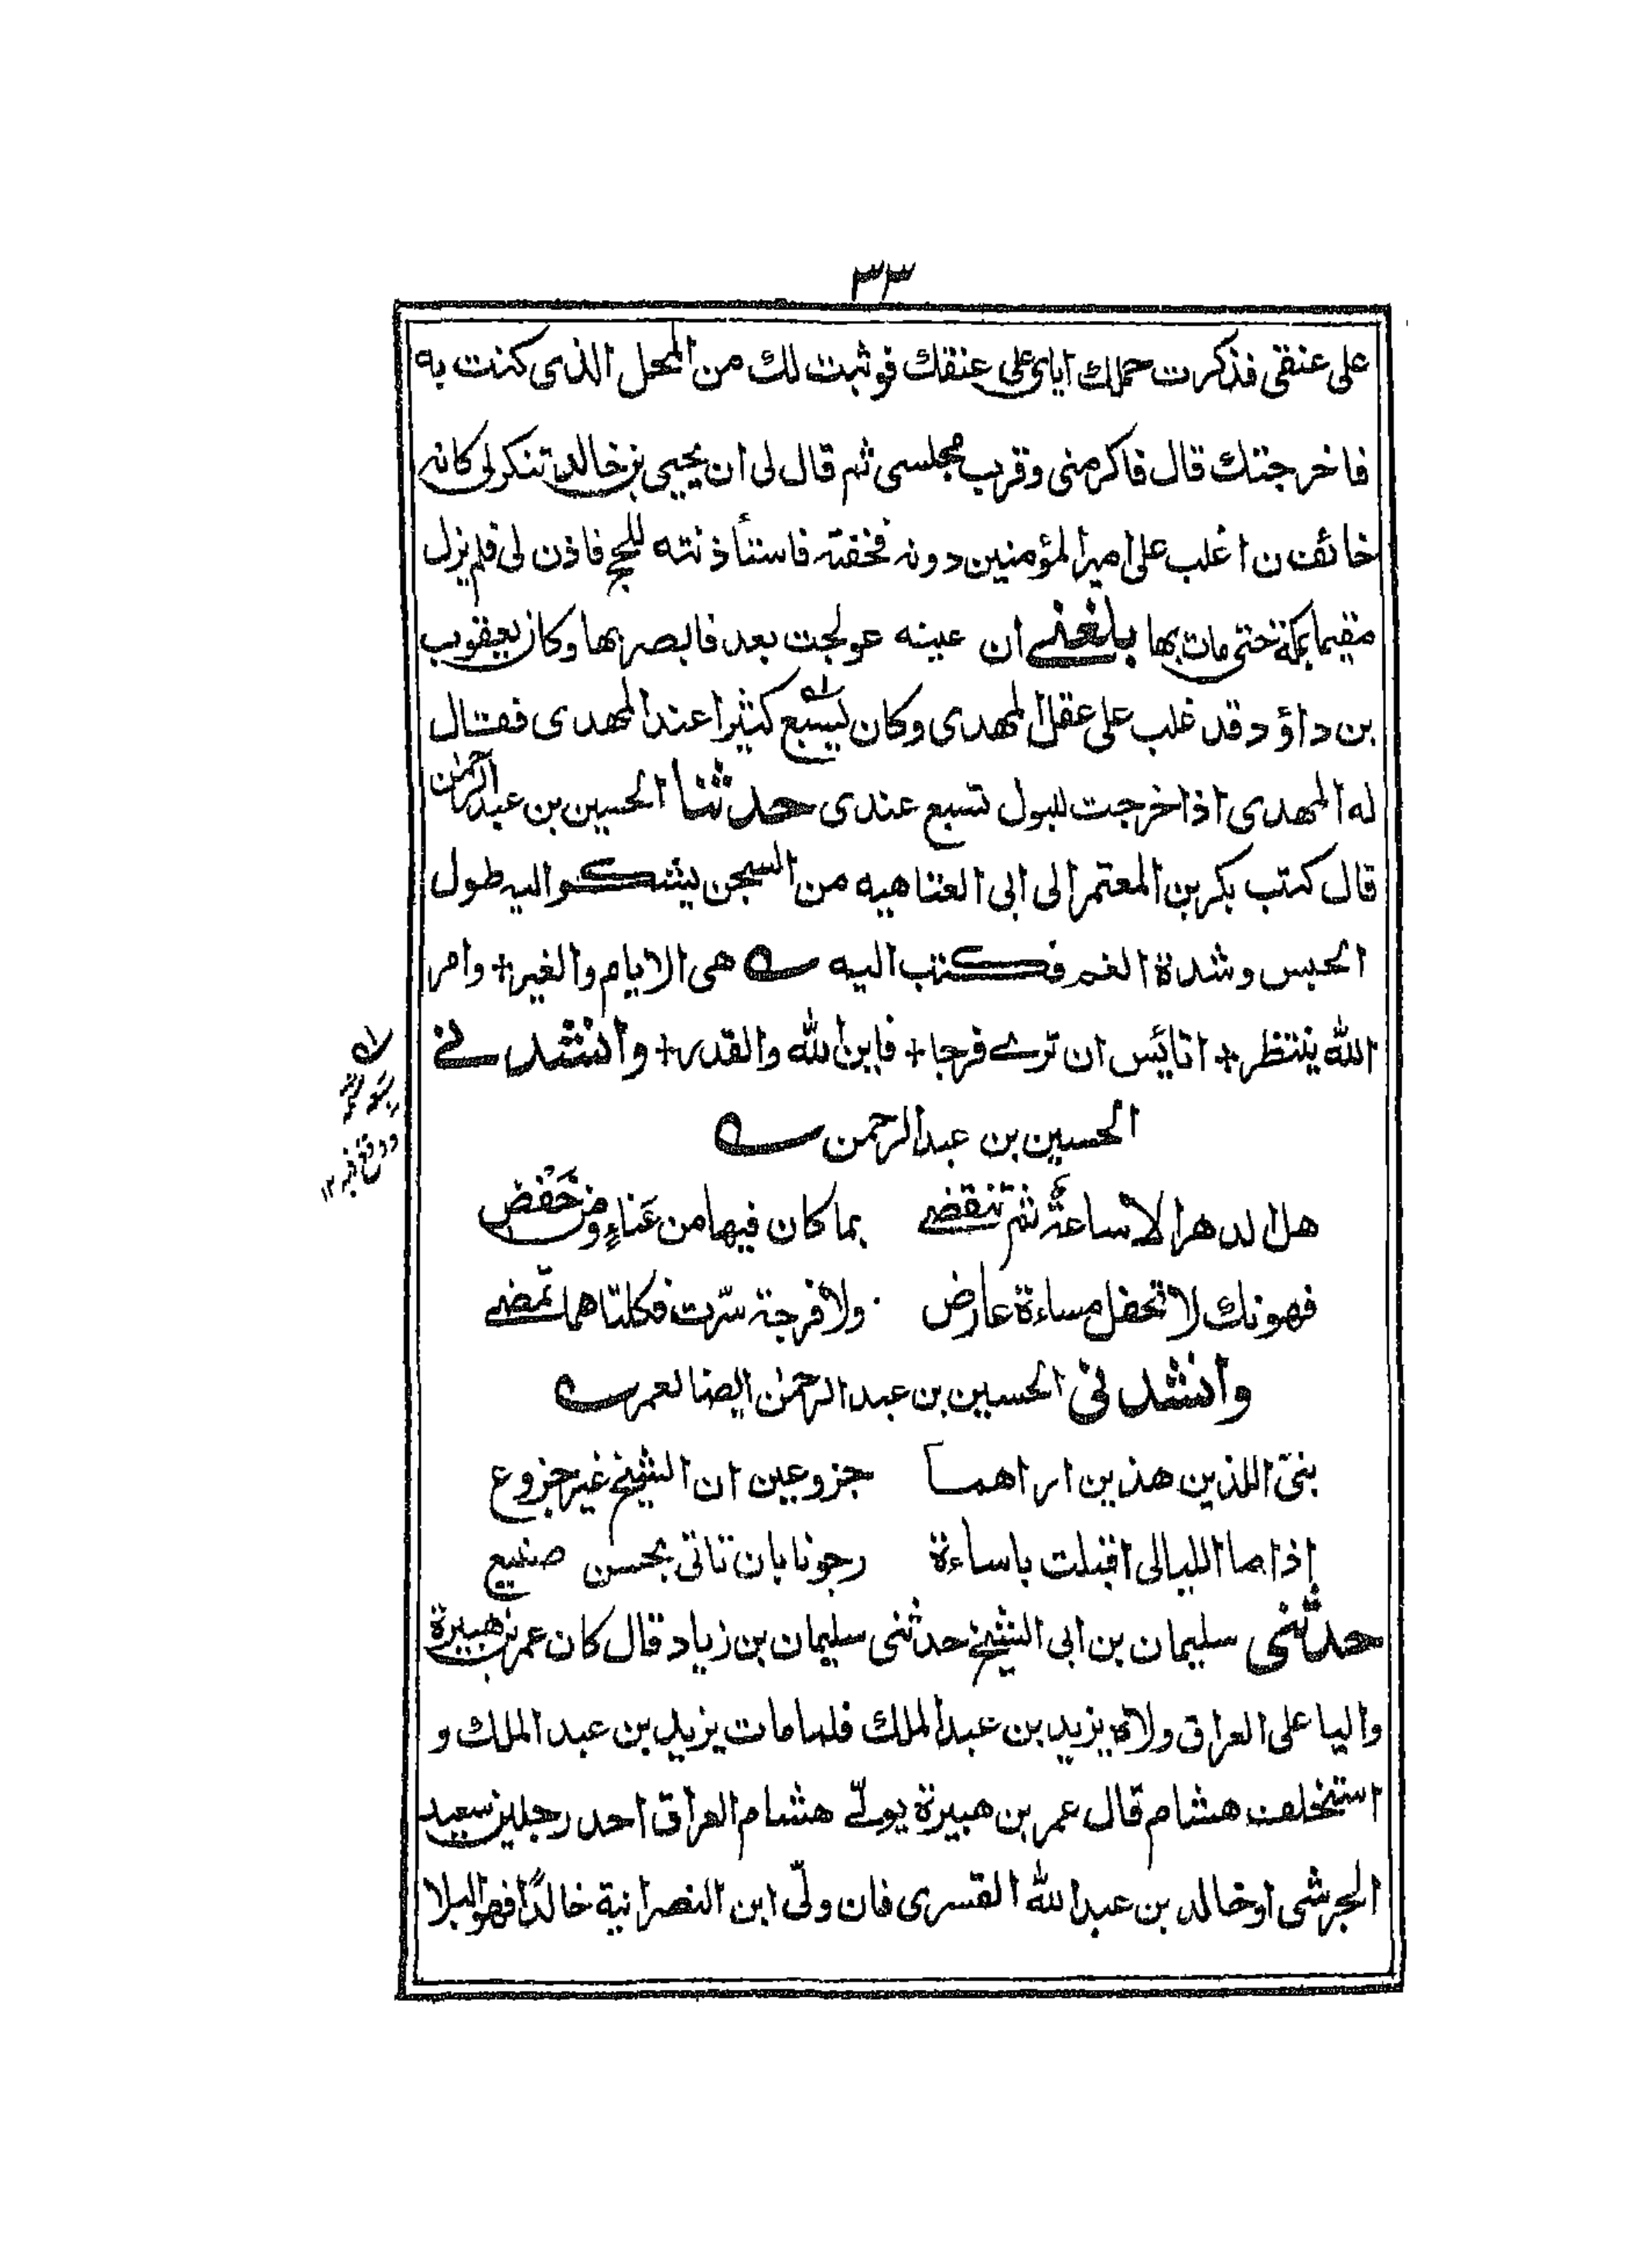 ٣٣
على عنقى فذكرت حملك اياى على عنقك فوثبت لك من المحل الذى كنت به
فاخرجتك قال فاكرمنى وقرب مجلسى ثم قال لى ان يحيى بن خالد تنكر لى كانه
خائف ن اغلب على امير المؤمنين دونه فخفته فاستأذنته للحج فاذن لى فلم يزل
مقيما بمكة حتى مات بها بلغنے ان عينه عولجت بعد فابصر بها وكان يعقوب
بن داؤد قد غلب على عقل المهدى وكان يسبع كثيرا عند المهدى فقال
له المهدى اذا خرجت للبول تسبع عندى حدثنا الحسين بن عبد الرحمٰن
قال كتب بكر بن المعتمر الى ابى العتاهيه من السجن يشكو اليه طول
الحبس وشدة الغم فكتب اليه ے هى الايام والغير + وامر
الله ينتظر + اتائيس ان ترے فرجا + فاين الله والقدر + وانشد نے
الحسين بن عبد الرحمن ے
هل الدهر الا ساعةٌ ثم تنقضے بما كان فيها من عَناءٍ ومن خَفْض
فهونك لا تحفل مساءة عارض ولا فرجة سرّت فكلتاهما تمضے
وانشد نى الحسين بن عبد الرحمٰن ايضا لعمرے
بنىّ اللذين هذين اراهما جزوعين ان الشيخ غير جزوع
اذا ما الليالى اقبلت باساءة رجونا بان تاتى بحسن صنيع
حدثنى سليمان بن ابى الشيخ حدثنى سليمان بن زياد قال كان عمر بن هبيرة
واليا على العراق ولاه يزيد بن عبد الملك فلما مات يزيد بن عبد الملك و
استخلف هشام قال عمر بن هبيرة يولّے هشام العراق احد رجلين سعيد
الجرشى او خالد بن عبد الله القسرى فان ولّى ابن النصرانية خالدًا فهو البلا